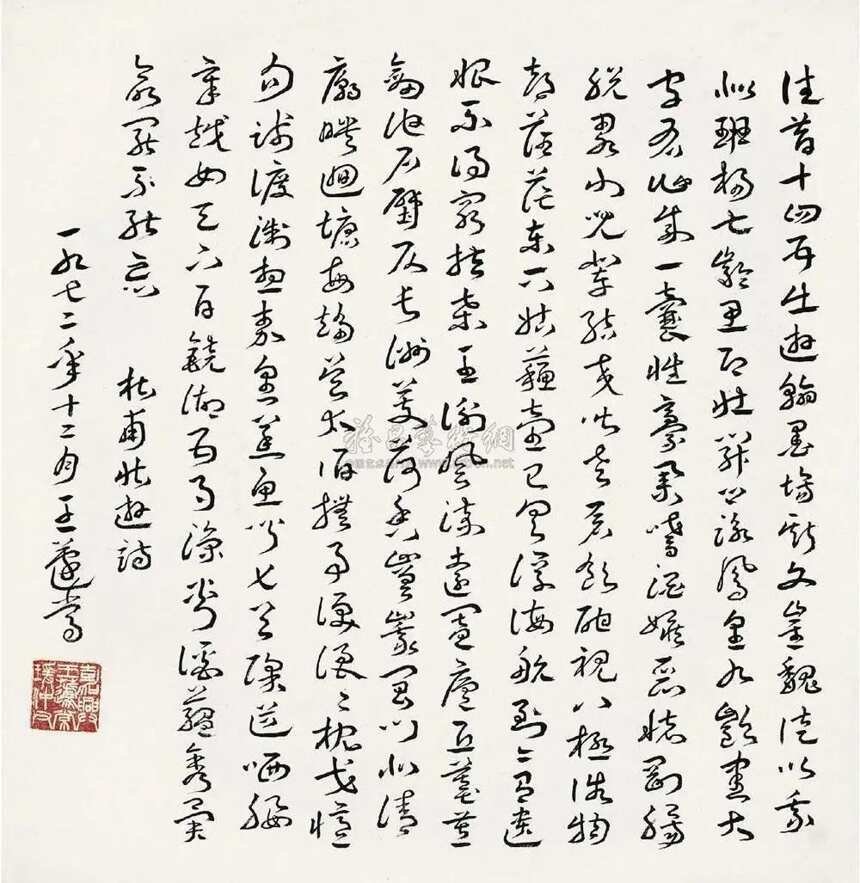 往昔十四五出遊翰墨場斯文崔魏徒以我
似班揚七齡思即壯開口詠鳳皇九齡書大
字有作成一囊性豪業嗜酒嫉惡懷剛腸
脫略小兒輩結交皆老蒼飲酣視八極俗物
都茫茫東下姑蘇臺已具浮海航到今有遺
恨不得窮扶桑王謝風流遠闔廬丘墓荒
劍池石壁仄長洲芰荷香嵯峨閶門北清
廟映迴塘每趨吳太伯撫事淚浪〻枕戈憶
勾踐渡浙想秦皇蒸魚聞匕首除道哂腰
章越女天下白鏡湖五月涼剡溪蘊秀異
欲罷不能忘 杜甫壯遊詩
一九七二年十二月王蘧常
雅昌藝術網